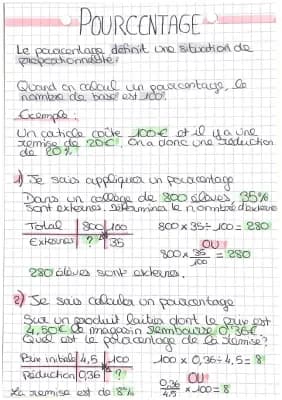 POURCENTAGE
Le pourcentage définit une situation de
proportionnalité.
Quand on calcul un pourcentage, le
nombre de base est 100.
Exemple :
Un article coûte 100€ et il y a une
remise de 20€. On a donc une réduction
de 20%.
1) Je sais appliquer un pourcentage
Dans un collège de 800 élèves, 35%
sont externes. Détermine le nombre d'externe
Total 800 100
Externes ? 35
800 x 35 ÷ 100 = 280
OU
800 x 35/100 = 280
280 élèves sont externes.
2) Je sais calculer un pourcentage
Sur un produit laitier dont le prix est
4,50€ le magasin rembourse 0,36€
Quel est le pourcentage de la remise?
Prix initiale 4,5 100
Réduction 0,36 ?
100 x 0,36 ÷ 4,5 = 8
OU
0,36/4,5 x 100 = 8
La remise est de 8%